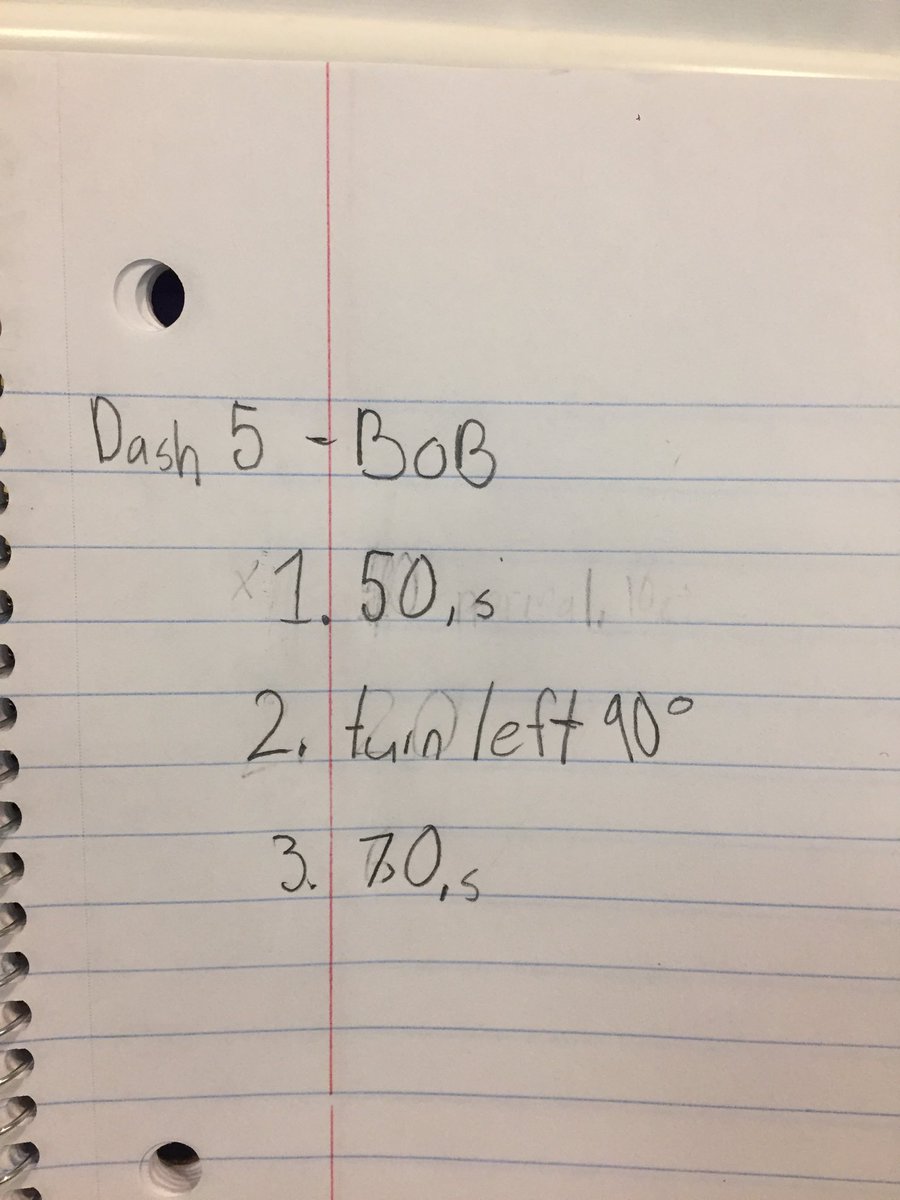 Dash 5 - BoB
1. 50, s
2. turn left 90°
3. 70, s